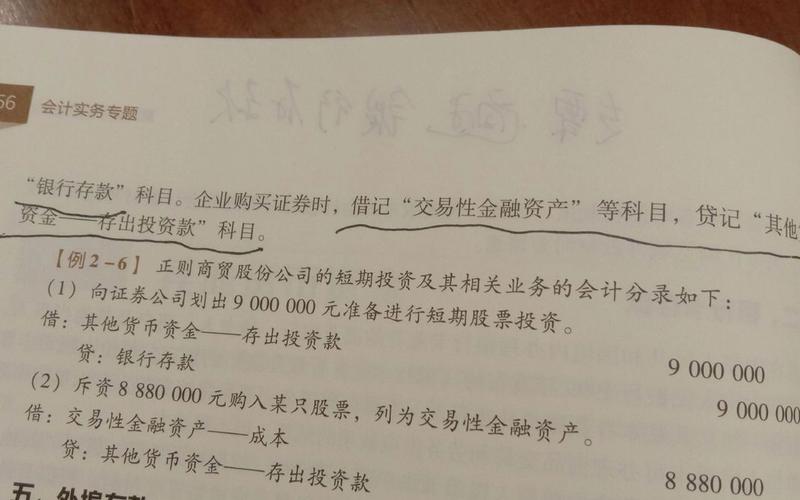 56 会计实务专题
“银行存款”科目。企业购买证券时，借记“交易性金融资产”等科目，贷记“其他
资金——存出投资款”科目。
【例2-6】正则商贸股份公司的短期投资及其相关业务的会计分录如下：
(1) 向证券公司划出9 000 000元准备进行短期股票投资。
借：其他货币资金——存出投资款 9 000 000
贷：银行存款 9 000 000
(2) 斥资8 880 000元购入某只股票，列为交易性金融资产。
借：交易性金融资产——成本 8 880 000
贷：其他货币资金——存出投资款
五、外埠存款